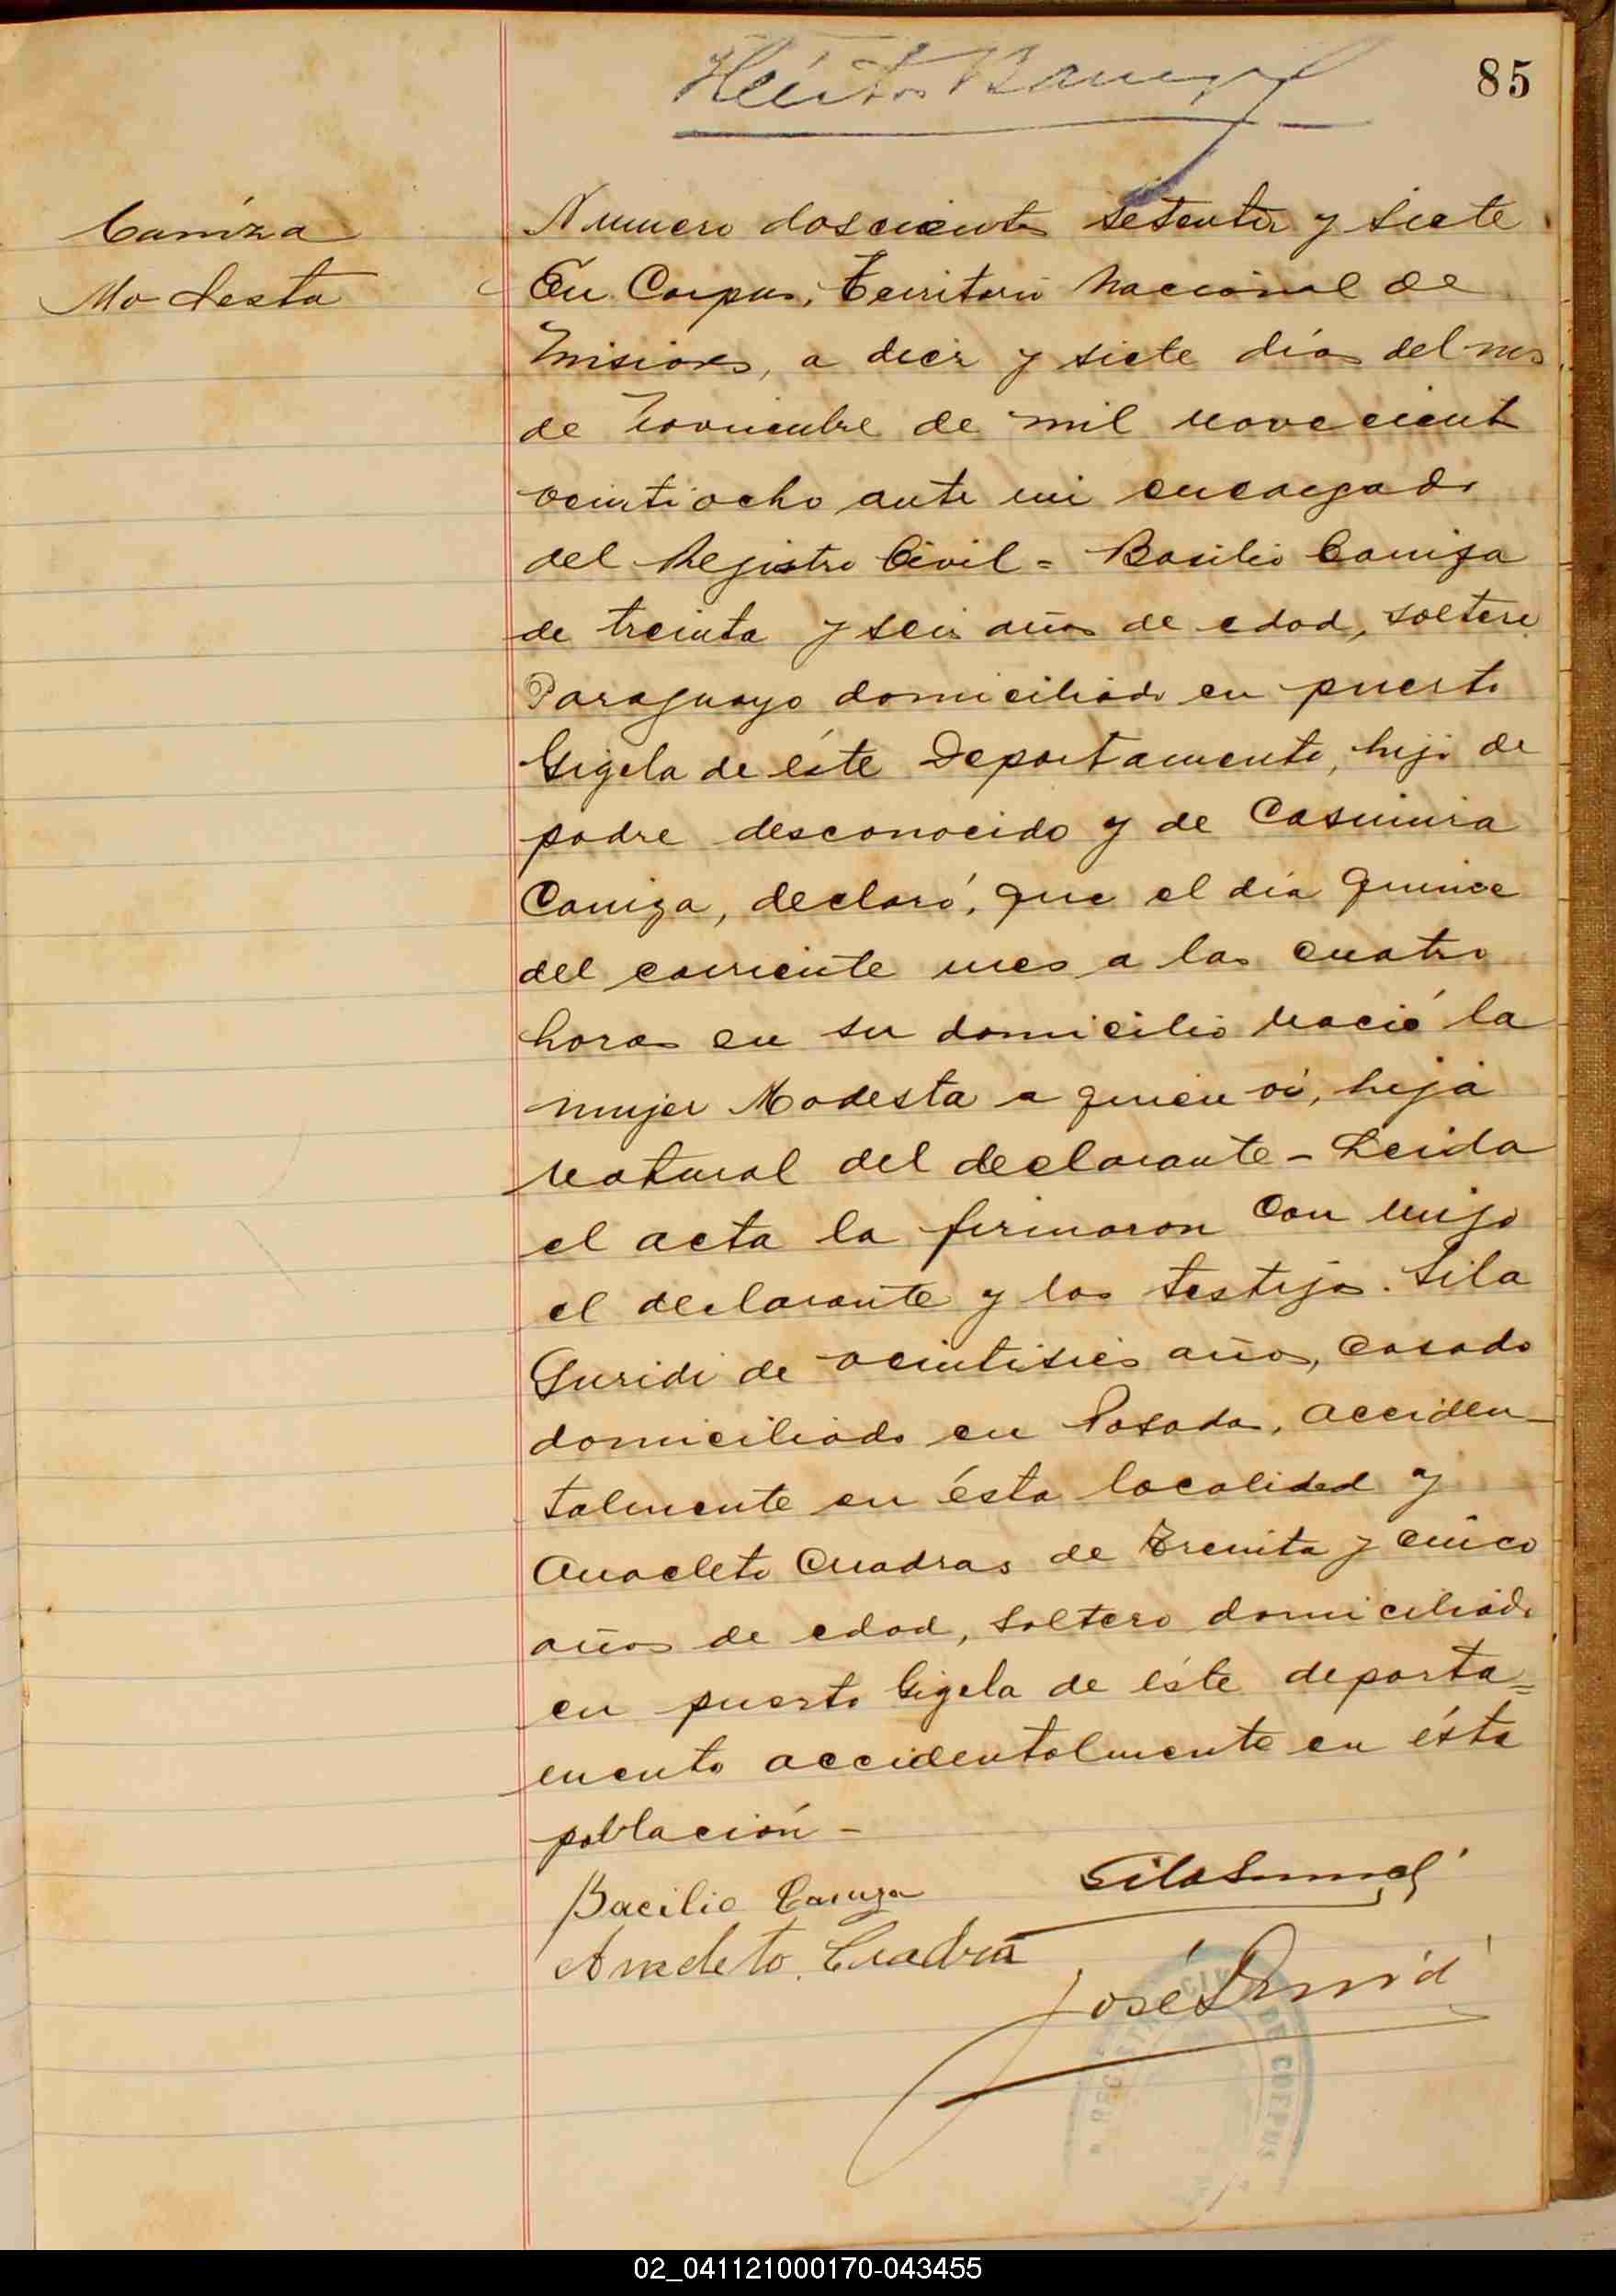 85
Caniza
Modesta
Numero doscientos setenta y siete
En Corpus, Territorio Nacional de
Misiones, a diez y siete días del mes
de Noviembre de mil novecient
veintiocho ante mi encargado
del Registro Civil = Basilio Caniza
de treinta y seis años de edad, soltero
Paraguayo domiciliado en puerto
Gigela de éste Departamento, hijo de
padre desconocido y de Casimira
Caniza, declaró, que el día quince
del corriente mes a las cuatro
horas en su domicilio nació la
mujer Modesta a quien vi, hija
natural del declarante - Leida
el acta la firmaron con migo
el declarante y los testigos. Sila
Guridi de veintiseis años, casado
domiciliado en Posadas, acciden_
talmente en ésta localidad y
Anacleto Cuadras de treinta y cinco
años de edad, soltero domiciliado
en puerto Gigela de éste departa=
mento accidentalmente en ésta
población -
Bacilio Caniza
Anacleto Cuadra
José
REGISTRO CIVIL DE CORPUS
02_041121000170-043455